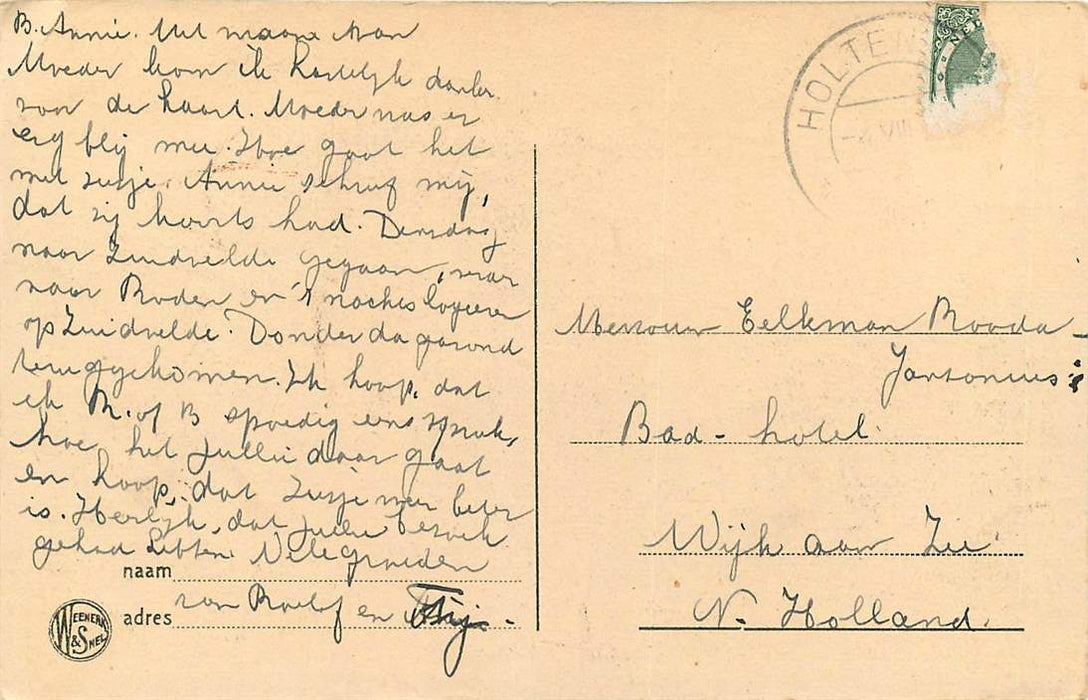 B. Annie. Uit naam van
Moeder kom ik hartelijk danken
voor de kaart. Moeder was er
erg blij mee. Hoe gaat het
met zusje. Annie schreef mij,
dat zij koorts had. Dinsdag
naar Zuidvelde gegaan, waar
naar Roden en 's nachts logeeren
op Zuidvelde. Donderdagavond
teruggekomen. Ik hoop, dat
ik R. of B spoedig eens spreek,
hoe het jullie daar gaat
en hoop, dat zusje weer beter
is. Heerlijk, dat jullie bezoek
gehad hebben. Vele groeten
van Roelof en
naam
adres
WEENENK & SNEL
HOLTEN
VIII
NED
Mevrouw Eelkman Rooda-
Jansonius:
Bad-hotel.
Wijk aan Zee
N. Holland.